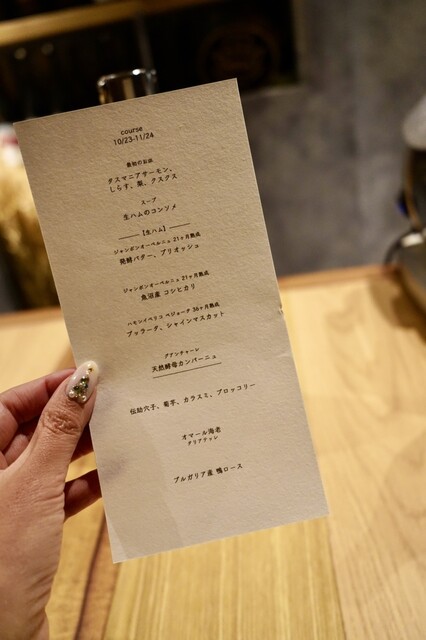 course
10/23-11/24
最初のお皿
タスマニアサーモン、
しらす、梨、クスクス
スープ
生ハムのコンソメ
【生ハム】
ジャンボンオーベルニュ 21ヶ月熟成
発酵バター、ブリオッシュ
ジャンボンオーベルニュ 21ヶ月熟成
魚沼産 コシヒカリ
ハモンイベリコ ベジョータ 36ヶ月熟成
ブッラータ、シャインマスカット
グアンチャーレ
天然酵母カンパーニュ
伝助穴子、菊芋、カラスミ、ブロッコリー
オマール海老
タリアテッレ
ブルガリア産 鴨ロース